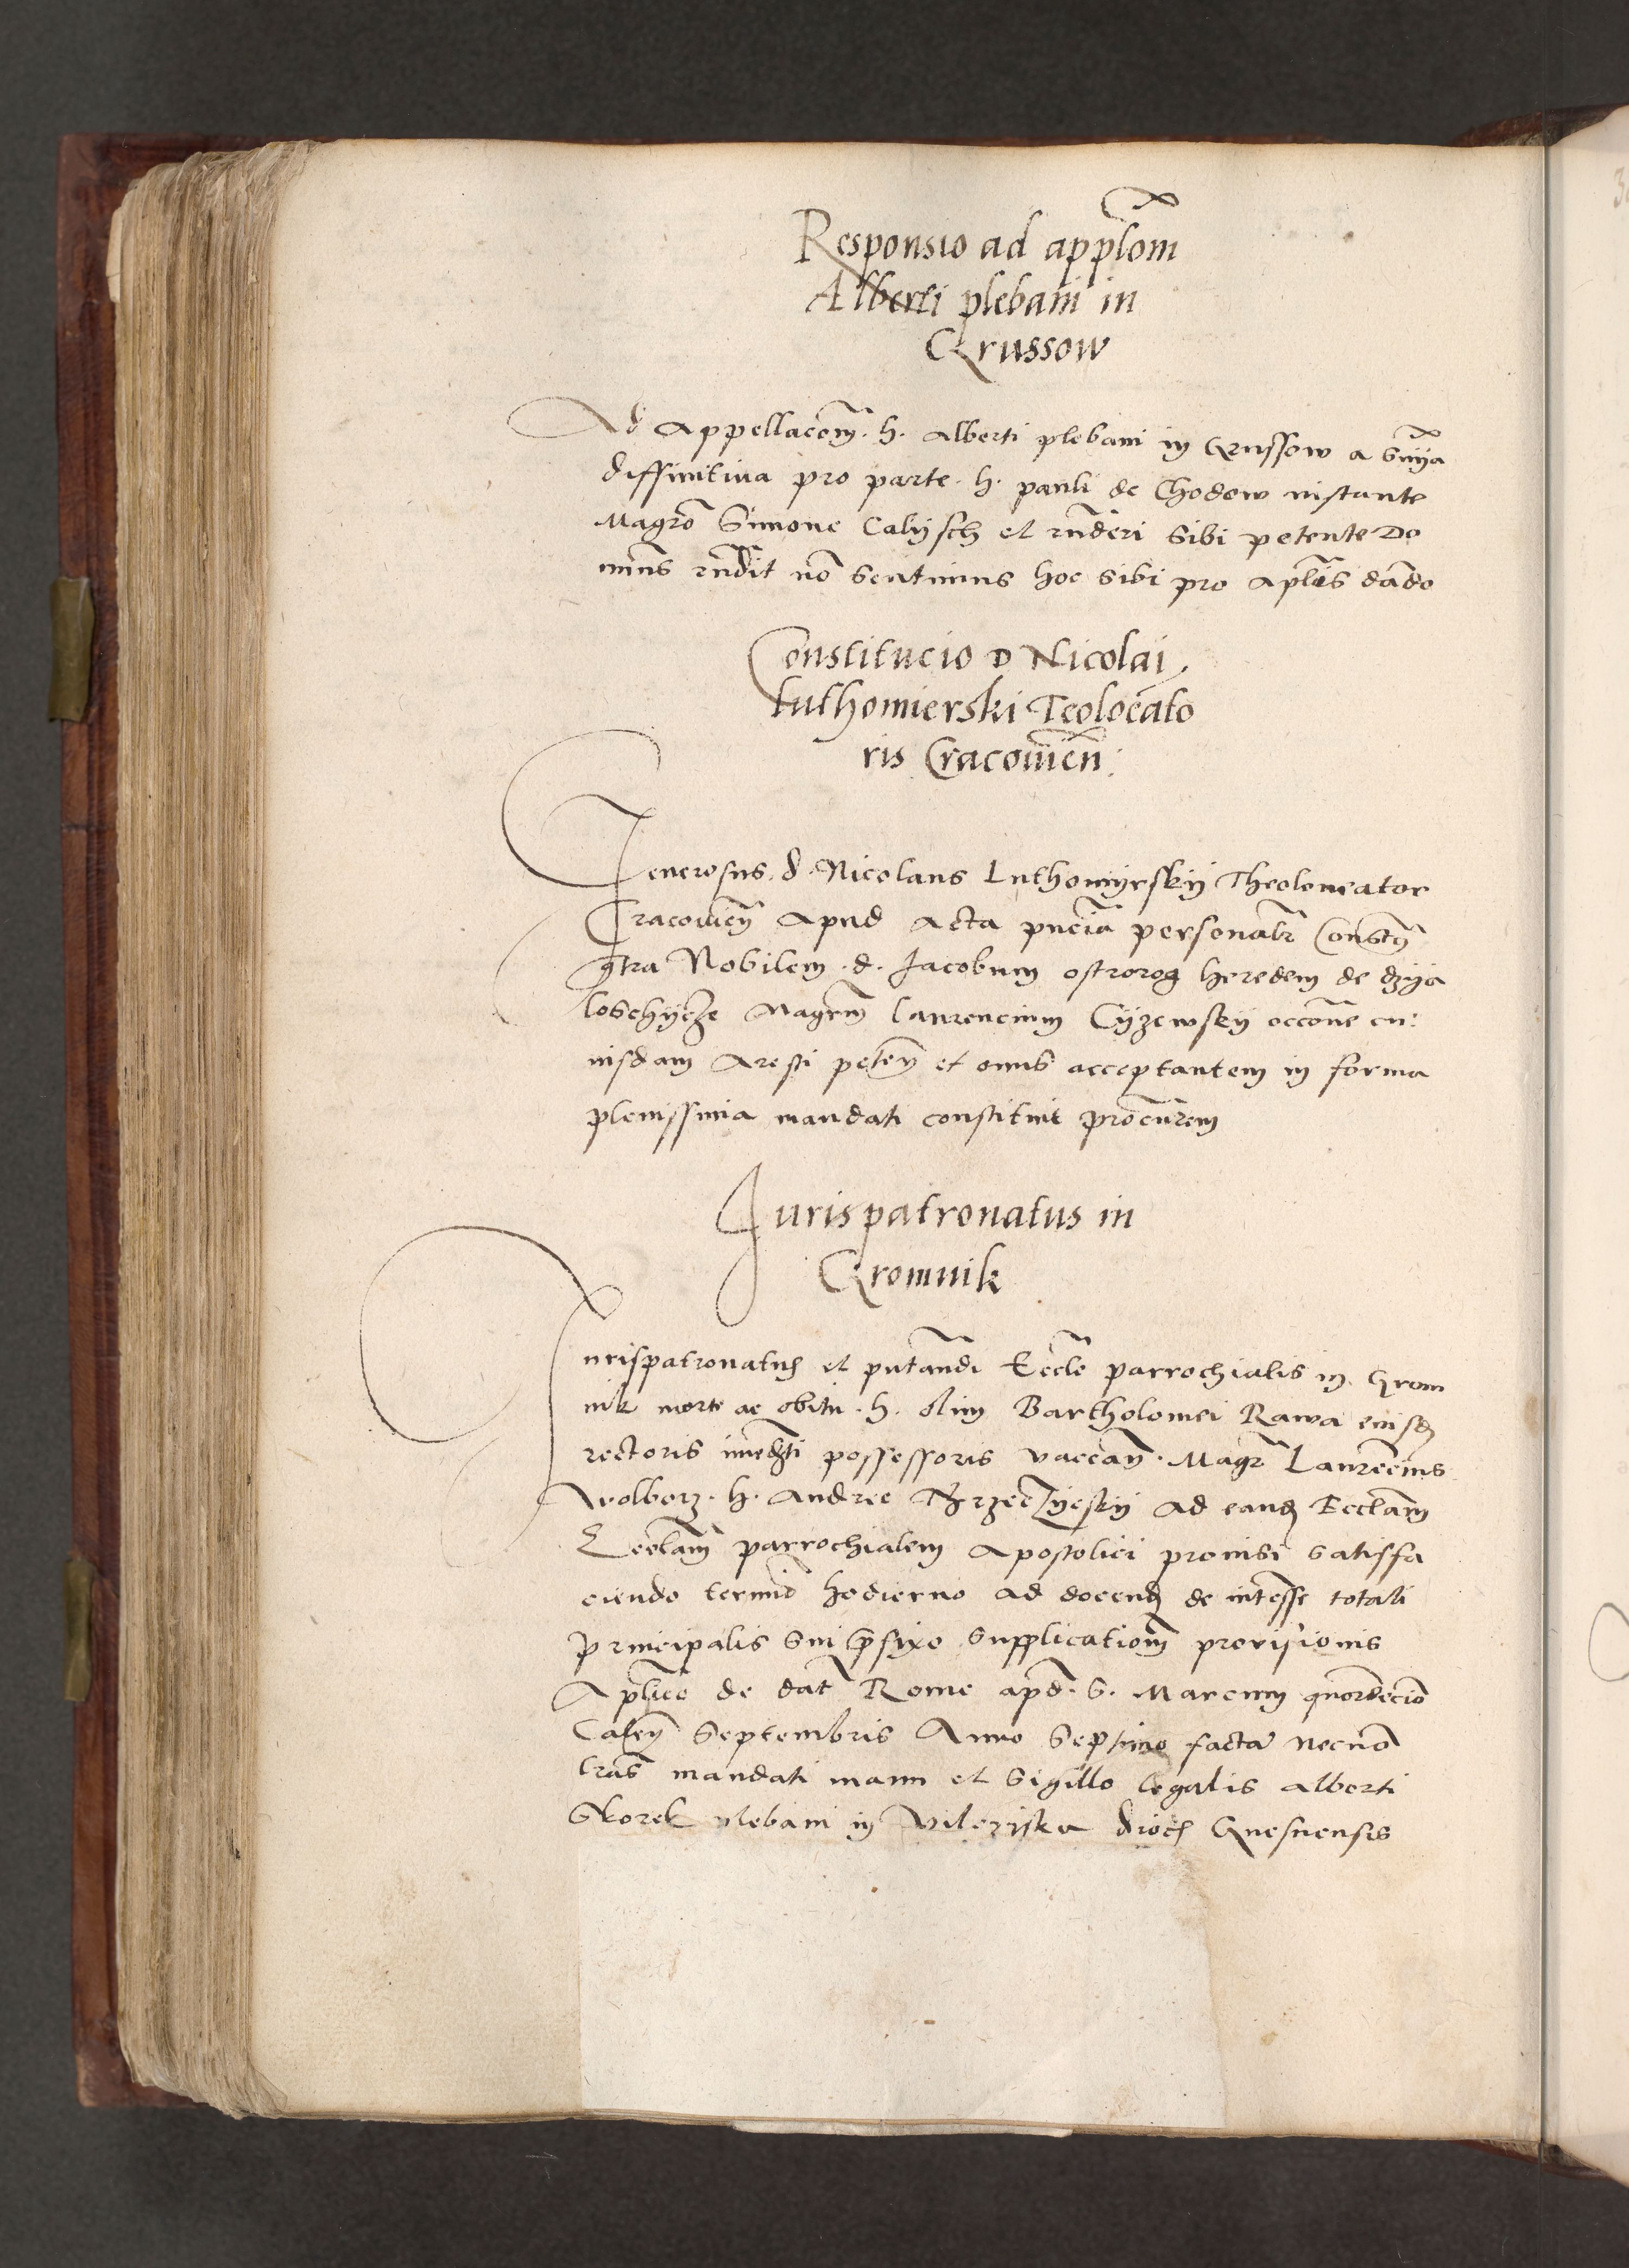 Responsio ad applõm
Alberti plebani in
Grussow
Ad Appellacõm. h. Alberti plebani in Grussow a Snĩa
diffinitiua pro parte. h. pauli de Chodow instante
Magrõ Simone Calÿsch et rñderi sibi petente Do
minus rñdit nõ sentimus hoc sibi pro aplĩs dãdo
Constitucio D Nicolai
luthomierski Teoloeato
ris Cracouieñ.
Generosus. d. Nicolaus Luthomÿrskÿ Theoloneator
Cracouieñ Apud Acta pñcia personalr Constitũ
cõtra Nobilem. d. Jacobum ostrorog heredem de
Magrm̃ laurencium Cÿzewskÿ occõne cu:
iusdam Aresti peteñ et onus acceptantem in forma
plenissima mandati constituit procurem
Jurispatronatus in
Gromnik
Jurispatronatus et pñtandi Eccle parrochialis in Grom
nik morte ac obitu. h. olim Bartholomei Rawa eiusd
rectoris imedti possessoris vaccañ. Magr Laurẽcius
Wolborz. h. Andree ad eand Ecclam
Ecclam parrochialem Apostolici prouisi satisfa
ciendo termĩo hodierno ad docend de intẽsse totali
principalis sui p̃fixo supplicationm prouisionis
Aplice de dat Rome apd. S. Marcum quordecio
Caleñ Septembris Anno Septimo factã Necnõ
lras mandati manu et sigillo legalis Alberti
Skorek plebani in dioc Gnesnensis